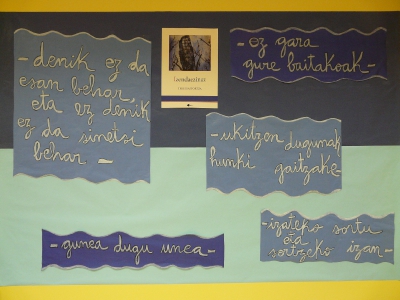 - denik ez da
esan behar,
eta ez denik
ez da sinetsi
behar -
- ez gara
gure baitakoak -
- ukitzen dugunak
hunki gaitzake -
- izateko sortu
eta
sortzeko izan -
- gunea dugu unea -